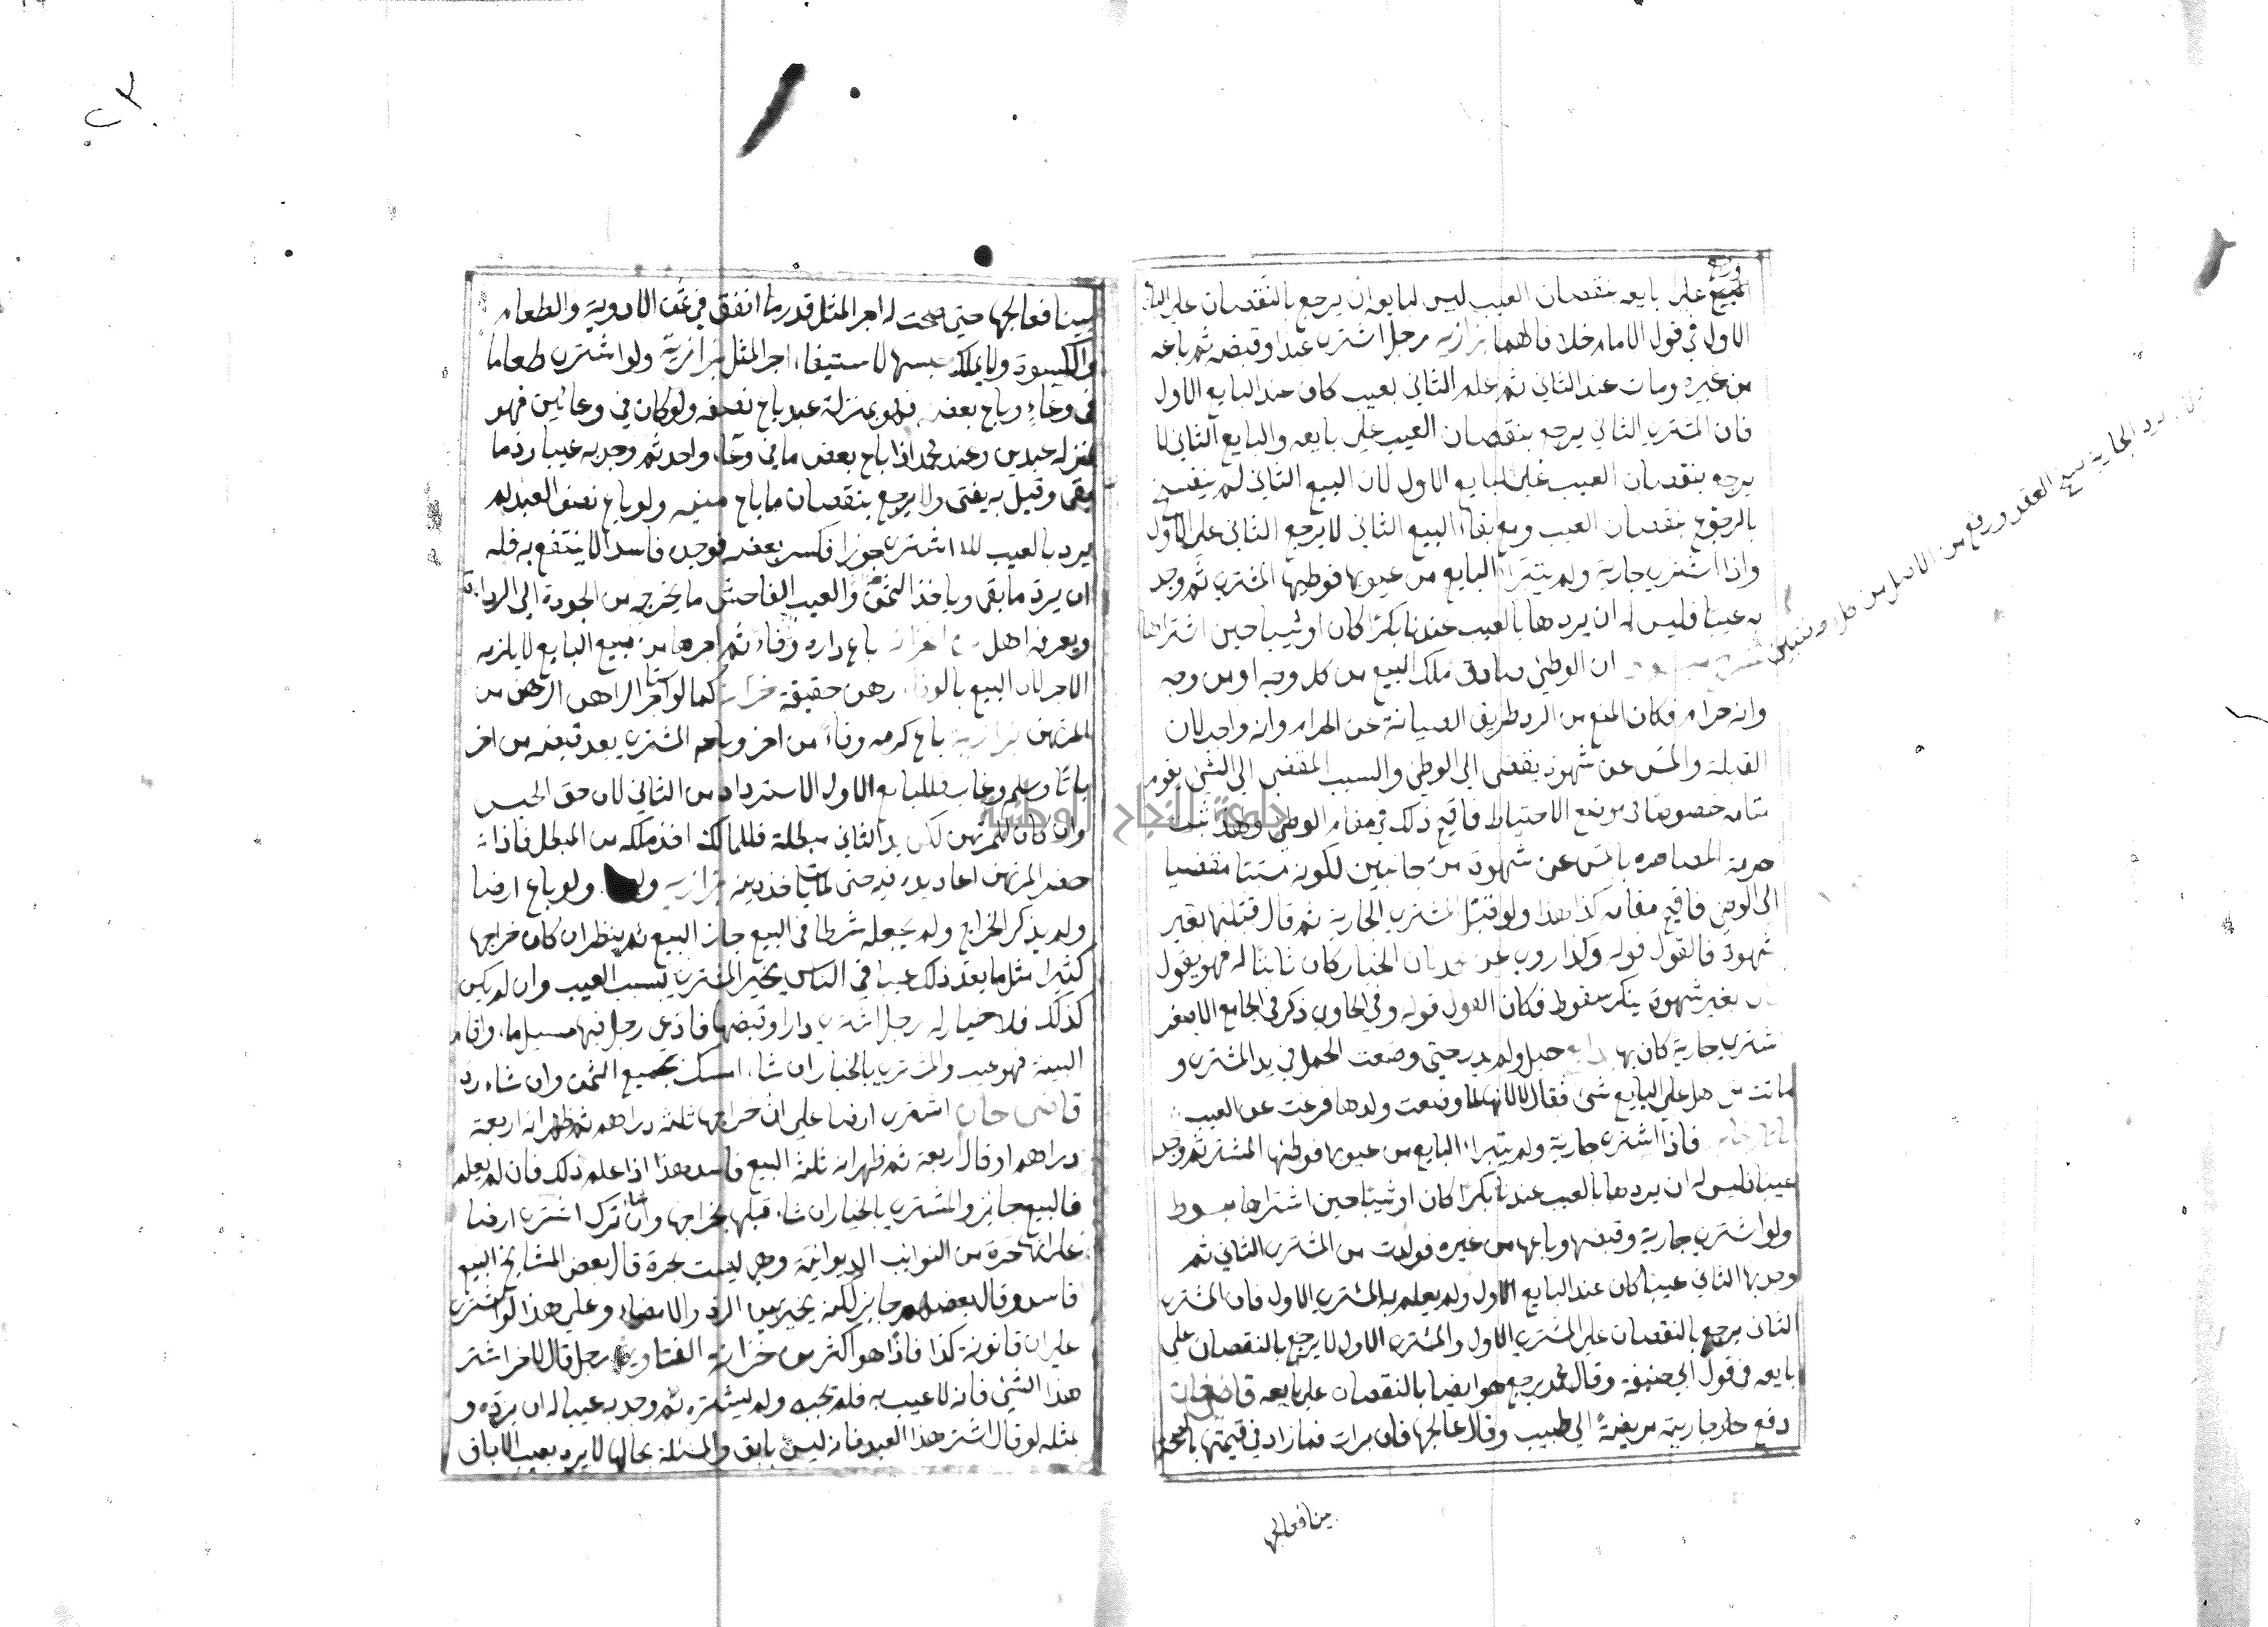 ورجع
المبيع على بايعه بنقصان العيب ليس لبايعه ان يرجع بالنقصان على البايع
الاول في قول الامام خلافا لهما بزازيه رجل اشترى عبدا وقبضه ثم باعه
من غيره ومات عند الثاني ثم علم الثاني بعيب كان عند البايع الاول
فان المشتري الثاني يرجع بنقصان العيب على بايعه والبايع الثاني لا
يرجع بنقصان العيب على البايع الاول لان البيع الثاني لم ينفسخ
بالرجوع بنقصان العيب ومع بقاء البيع الثاني لا يرجع الثاني على الاول
واذا اشترى جارية ولم يتبرأ البايع من عيوبها فوطيها المشتري ثم وجد
به عيبا فليس له ان يردها بالعيب عندنا بكرا كان او ثيبا حين اشتراها
ان الوطئ صادف ملك البيع من كل وجه او من وجه
وانه حرام فكان المنع من الرد طريق الصيانة عن الحرام وانه واجب لان
القبلة والمس عن شهوة يفضى الى الوطئ والسبب المفضى الى الشئ يقوم
مقامه خصوصا في موضع الاحتياط فاقيم ذلك في مقام الوطئ وهذ ثبت
حرمة المصاهره بالمس عن شهوة من جانبين لكونه مسببا مفضيا
الى الوطئ فاقيم مقامه كذا هذا ولو قبل المشتري الجارية ثم قال قبلتها بغير
شهوة فالقول قوله وكذا روي عن محمد لان الخيار كان ثابتا له فهو يقول
بغير شهوة ينكر سقوط فكان القول قوله وفي الحاوي ذكر في الجامع الاصغر
اشترى جارية كان بها حبل ولم يدر حتى وضعت الحمل في يد المشتري و
ماتت هل على البايع شئ فقال لا لانها لما وضعت ولدها فرغت عن العيب
فاذا اشترى جارية ولم يتبرا البايع من عيوبها فوطئها المشتري ثم وجد
عيبا فليس له ان يردها بالعيب عندنا بكرا كان او ثيبا حين اشتراها مبسوط
ولو اشترى جارية وقبضها وباعها من غيره فولدت من المشتري الثاني ثم
وجد بها الثاني عيبا كان عند البايع الاول ولم يعلم به المشتري الاول فان المشتري
الثاني يرجع بالنقصان على المشتري الاول والمشتري الاول لا يرجع بالنقصان على
بايعه في قول ابي حنيفة وقال محمد يرجع هو ايضا بالنقصان على بايعه قاضيخان
دفع جارية مريضة الى طبيب وقال عالجها فان برات فما زاد في قيمتها بالصحة
بيننا فعالجها
بيننا فعالجها حتى صحت له اجر المثل قدر ما انفق في ثمن الادوية والطعام
والكسوة ولا يملك حبسها لاستيفاء اجر المثل بزازية ولو اشترى طعاما
في وعاء وباع بعضه فهو بمنزلة عبد باع نصفه ولو كان في وعائين فهو
بمنزلة عبدين وعند محمد اذا باع بعض ما في وعاء واحد ثم وجد به عيبا رد ما
بقى وقيل به يفتى ولا يرجع بنقصان ما باع منه ولو باع نصف العبد لم
يرد بالعيب اشترى جوزا فكسر بعضه فوجده فاسدا لا ينتفع به فله
ان يرد ما بقى وياخذ الثمن والعيب الفاحش ما يخرجه من الجودة الى الرداة
ويعرفه اهل باع داره وفاء ثم اجرها من مبيع البايع لا يلزمه
الاجر لان البيع بالوفاء رهن حقيقة كما لو اجر الراهن الرهن من
المرتهن بزازية باع كرمه وفاء من اخر وباعه المشتري بعد قبضه من اخر
باتا وسلم وغاب فللبايع الاول الاسترداد من الثاني لان حق الحبس
وان كان للمرتهن لكن يد الثاني مبطلة فللمالك اخذ ملكه من المبطل فاذا
حضر المرتهن اعاد يده فيه حتى ياخذ دينه بزازيه ولو باع ارضا
ولم يذكر الخراج ولم يجعله شرطا في البيع جاز البيع ثم ينظر ان كان خراجها
كثيرا مثل ما يعد ذلك عيبا في الناس يخير المشتري بسبب العيب وان لم يكن
كذلك فلا خيار له رجل اشترى دارا وقبضها فادعى رجل فيها مسيل ماء واقام
البينة فهو عيب والمشتري بالخيار ان شاء امسك بجميع الثمن وان شاء رد
قاضى خان اشترى ارضا على ان خراجها ثلثة دراهم ثم ظهر انه اربعة
دراهم او قال اربعة ثم ظهر انه ثلثة البيع فاسد هذا اذا علم ذلك فان لم يعلم
فالبيع جايز والمشتري بالخيار ان شاء قبلها بخراجها وان شاء ترك اشترى ارضا
على انها حرة من النوائب الديوانية وهي ليست بحرة قال بعض المشايخ البيع
فاسد وقال بعضهم جايز لكنه يخير بين الرد والامضاء وعلى هذا لو اشترى
على ان قانونه كذا فاذا هو اكثر من خزانة الفتاوى رجل قال لاخر اشتر
هذا الشئ فانه لا عيب به فلم يجبه ولم يشتره ثم وجد به عيبا له ان يرده و
بمثله لو قال اشتر هذا العبد فانه ليس بابق والمسئلة بحالها لا يرد بعيب الاباق